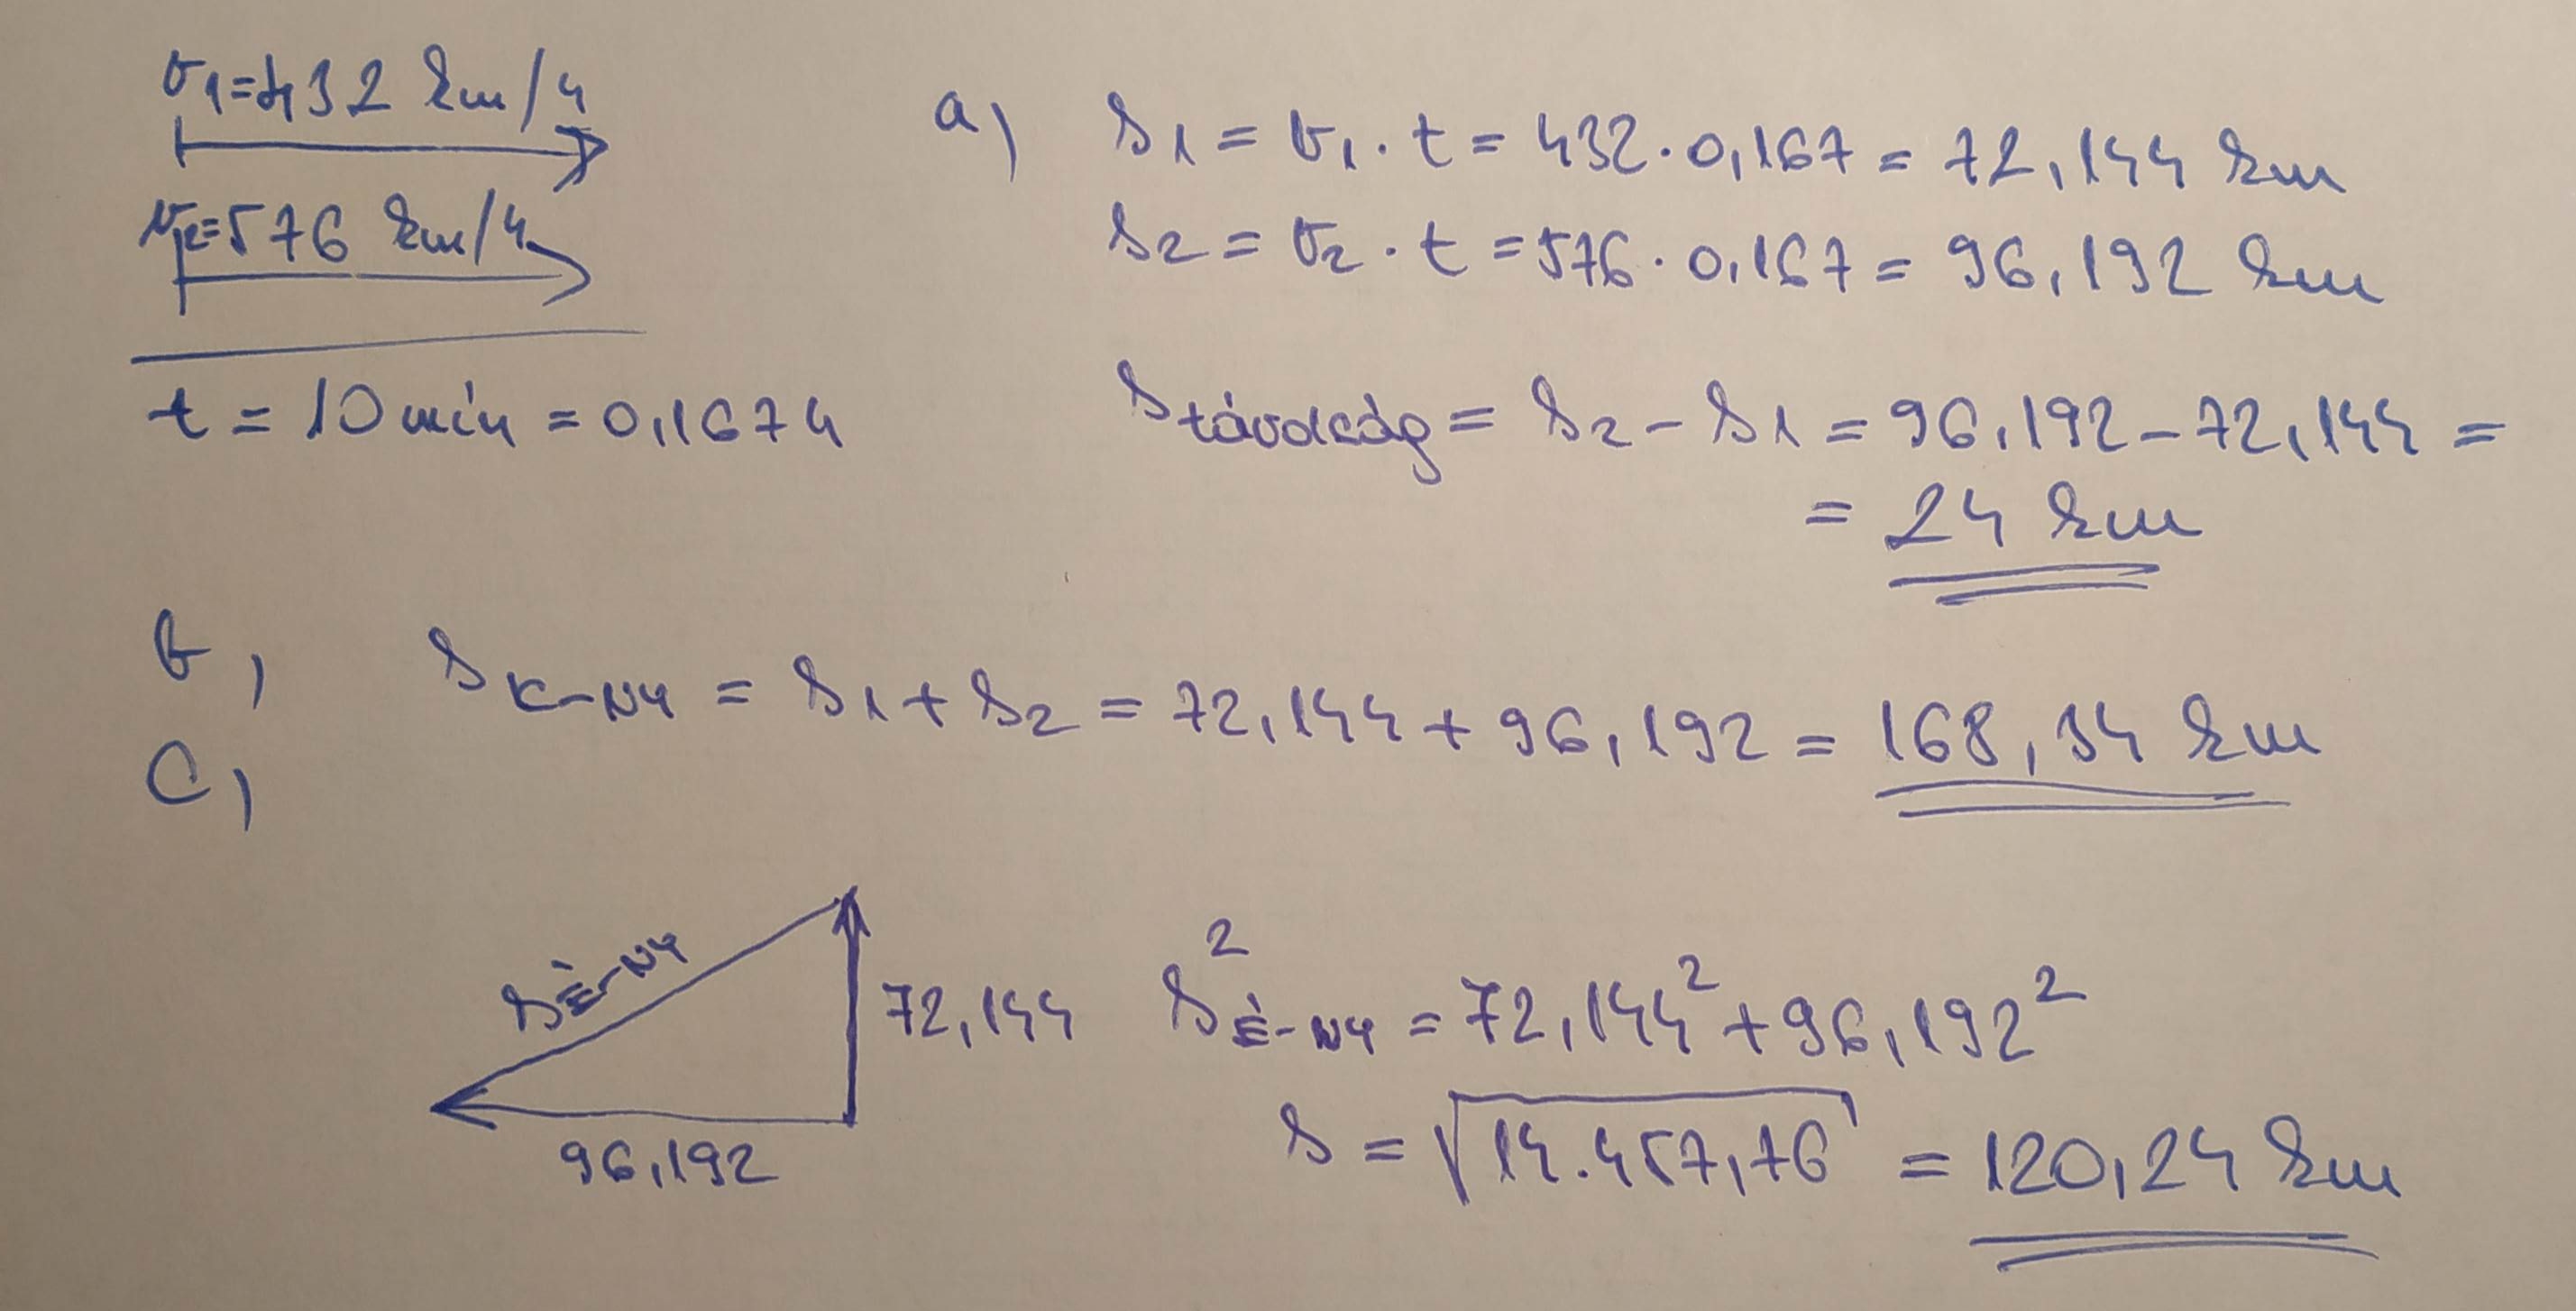 v₁=432 km/h
v₂=576 km/h
t = 10 min = 0,167 h
a) s₁ = v₁ · t = 432 · 0,167 = 72,144 km
s₂ = v₂ · t = 576 · 0,167 = 96,192 km
s távolság = s₂ - s₁ = 96,192 - 72,144 =
= 24 km
b, s K-NY = s₁ + s₂ = 72,144 + 96,192 = 168,34 km
c,
s É-NY
72,144
96,192
s² É-NY = 72,144² + 96,192²
s = √14.457,76 = 120,24 km